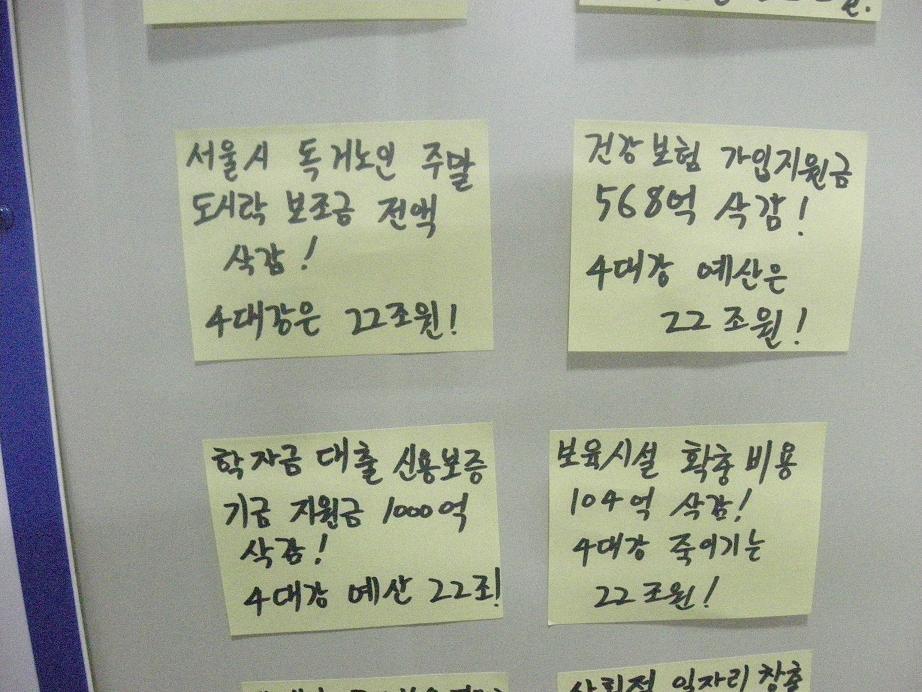 서울시 독거노인 주말
도시락 보조금 전액
삭감!
4대강은 22조원!
건강보험 가입지원금
568억 삭감!
4대강 예산은
22조원!
학자금 대출 신용보증
기금 지원금 1000억
삭감!
4대강 예산 22조!
보육시설 확충비용
104억 삭감!
4대강 죽이기는
22조원!
사회적 일자리 창출